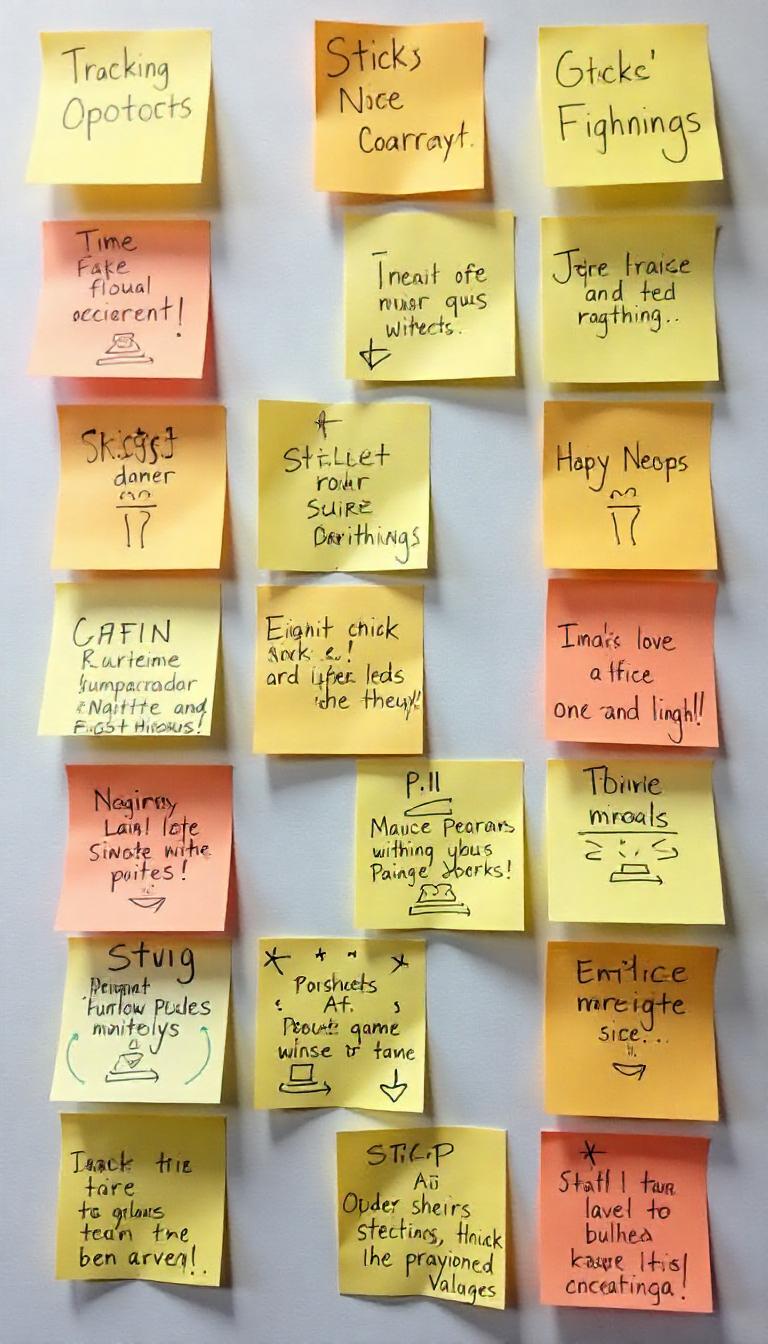 Tracking
Opotocts
Sticks
Noce
Coarrayt.
Gticks'
Fighnings
Time
Fake
floual
occierent!
Ineait ofe
nuser qus
witects.
Jqre traise
and ted
ragthing..
daner
Stillet
rour
SUIRE
Dorithings
Hapy Neops
CAFIN
Rurteime
and
Eignit chick
ard leds
the theuy!!
Imais love
a ffice
one and lingh!!
Negirny
Lain! lote
Sinote withe
poites!
P.II
Mauce Pearars
withing ybus
Painge Jberks!
Tbinie
mroals
Stvig
Funlow pudes
monitolys
Porsheets
At.
game
winse tr tame
Entlice
mreigte
sice...
trie
tare
to gulous
team tne
ben arven!.
STILP
Au
Ouder sheirs
stectincs, Hnick
lhe prayioned
Valages
Statl I tuun
lavel to
bulhed
kauue Itis!
cnceatinga!